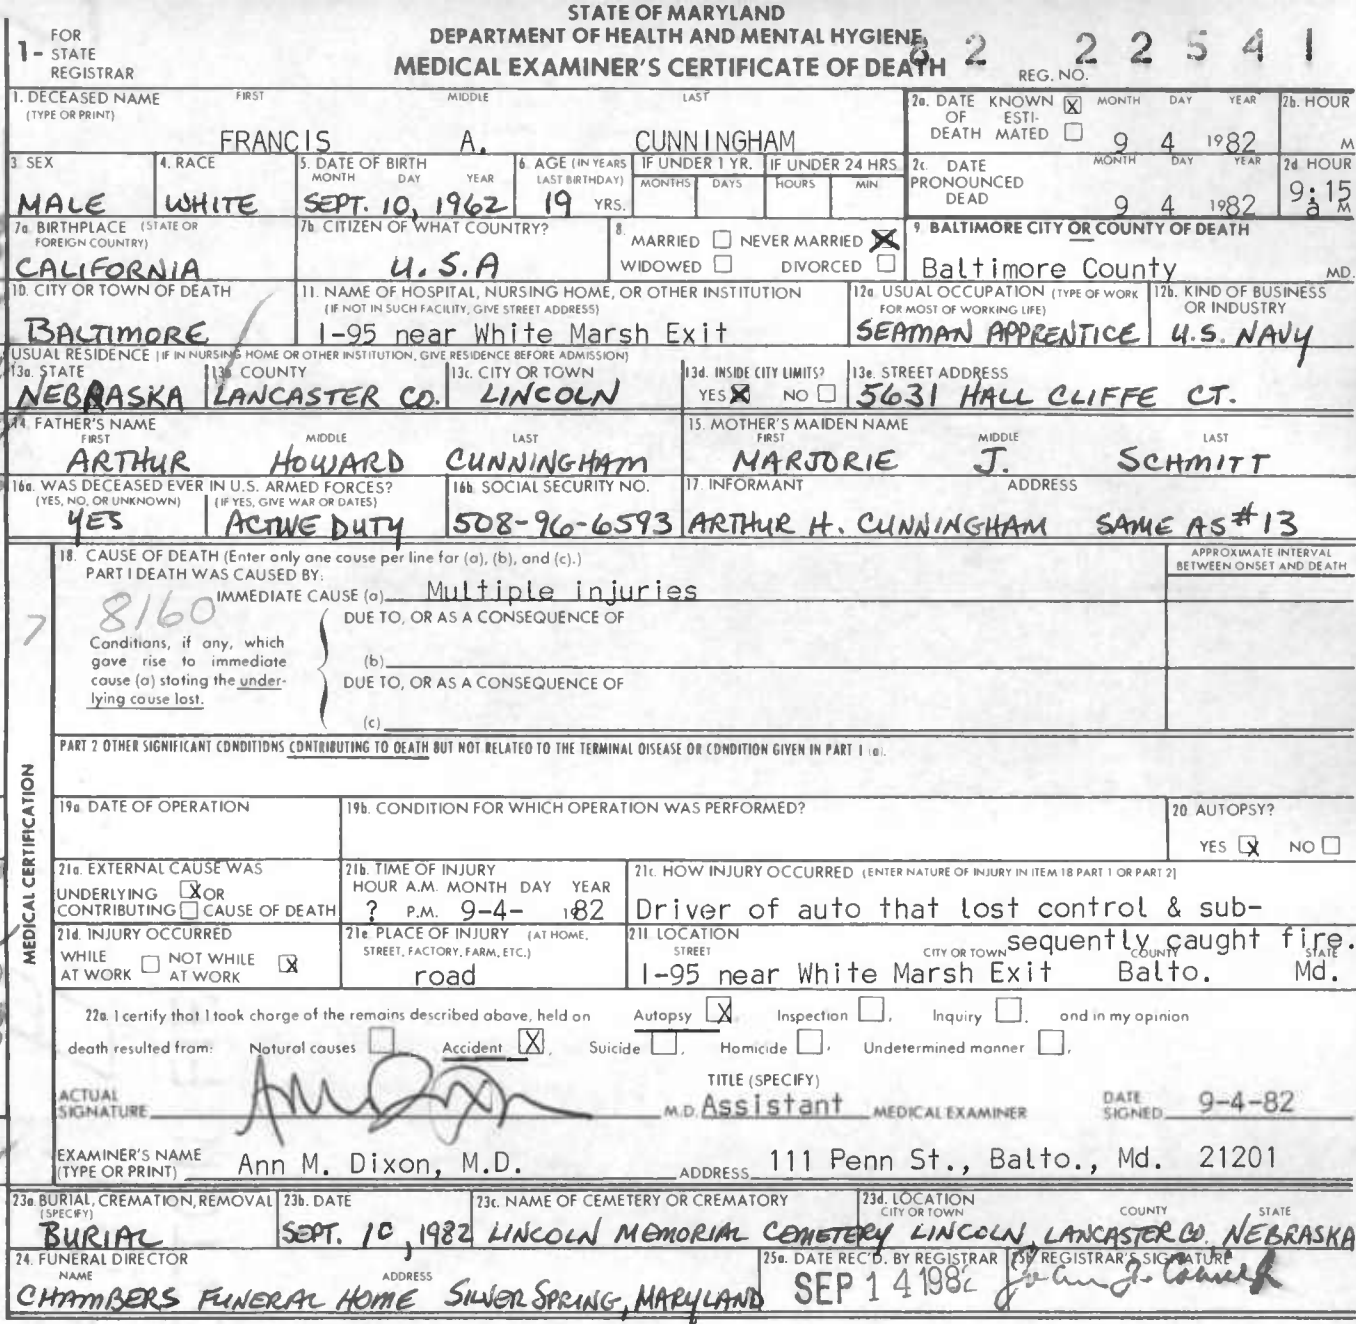 STATE OF MARYLAND
DEPARTMENT OF HEALTH AND MENTAL HYGIENE
MEDICAL EXAMINER'S CERTIFICATE OF DEATH
1- FOR STATE REGISTRAR
REG. NO. 82 22541
1. DECEASED NAME (TYPE OR PRINT) FIRST MIDDLE LAST
FRANCIS A. CUNNINGHAM
2a. DATE OF DEATH KNOWN X ESTIMATED MONTH DAY YEAR
9 4 1982
2b. HOUR M
3. SEX
MALE
4. RACE
WHITE
5. DATE OF BIRTH MONTH DAY YEAR
SEPT. 10, 1962
6. AGE (IN YEARS LAST BIRTHDAY)
19 YRS.
IF UNDER 1 YR. MONTHS DAYS
IF UNDER 24 HRS HOURS MIN
2c. DATE PRONOUNCED DEAD MONTH DAY YEAR
9 4 1982
2d HOUR
9:15 a M
7a. BIRTHPLACE (STATE OR FOREIGN COUNTRY)
CALIFORNIA
7b. CITIZEN OF WHAT COUNTRY?
U.S.A
8. MARRIED NEVER MARRIED X
WIDOWED DIVORCED
9. BALTIMORE CITY OR COUNTY OF DEATH
Baltimore County MD.
10. CITY OR TOWN OF DEATH
BALTIMORE
11. NAME OF HOSPITAL, NURSING HOME, OR OTHER INSTITUTION
(IF NOT IN SUCH FACILITY, GIVE STREET ADDRESS)
I-95 near White Marsh Exit
12a. USUAL OCCUPATION (TYPE OF WORK FOR MOST OF WORKING LIFE)
SEAMAN APPRENTICE
12b. KIND OF BUSINESS OR INDUSTRY
U.S. NAVY
USUAL RESIDENCE (IF IN NURSING HOME OR OTHER INSTITUTION, GIVE RESIDENCE BEFORE ADMISSION)
13a. STATE
NEBRASKA
13b. COUNTY
LANCASTER CO.
13c. CITY OR TOWN
LINCOLN
13d. INSIDE CITY LIMITS?
YES X NO
13e. STREET ADDRESS
5631 HALL CLIFFE CT.
14. FATHER'S NAME FIRST MIDDLE LAST
ARTHUR HOWARD CUNNINGHAM
15. MOTHER'S MAIDEN NAME FIRST MIDDLE LAST
MARJORIE J. SCHMITT
16a. WAS DECEASED EVER IN U.S. ARMED FORCES?
(YES, NO, OR UNKNOWN) (IF YES, GIVE WAR OR DATES)
YES ACTIVE DUTY
16b. SOCIAL SECURITY NO.
508-96-6593
17. INFORMANT ADDRESS
ARTHUR H. CUNNINGHAM SAME AS #13
MEDICAL CERTIFICATION
18. CAUSE OF DEATH (Enter only one cause per line for (a), (b), and (c).)
APPROXIMATE INTERVAL BETWEEN ONSET AND DEATH
PART I DEATH WAS CAUSED BY:
IMMEDIATE CAUSE (a) Multiple injuries
8160
7
DUE TO, OR AS A CONSEQUENCE OF
Conditions, if any, which gave rise to immediate cause (a) stating the underlying cause last.
(b)
DUE TO, OR AS A CONSEQUENCE OF
(c)
PART 2 OTHER SIGNIFICANT CONDITIONS CONTRIBUTING TO DEATH BUT NOT RELATED TO THE TERMINAL DISEASE OR CONDITION GIVEN IN PART 1 (a).
19a. DATE OF OPERATION
19b. CONDITION FOR WHICH OPERATION WAS PERFORMED?
20. AUTOPSY?
YES X NO
21a. EXTERNAL CAUSE WAS
UNDERLYING X OR
CONTRIBUTING CAUSE OF DEATH
21b. TIME OF INJURY
HOUR A.M. MONTH DAY YEAR
? P.M. 9-4- 1982
21c. HOW INJURY OCCURRED (ENTER NATURE OF INJURY IN ITEM 18 PART 1 OR PART 2)
Driver of auto that lost control & sub-
sequently caught fire.
21d. INJURY OCCURRED
WHILE AT WORK NOT WHILE AT WORK X
21e. PLACE OF INJURY (AT HOME, STREET, FACTORY, FARM, ETC.)
road
21f. LOCATION STREET CITY OR TOWN COUNTY STATE
I-95 near White Marsh Exit Balto. Md.
22a. I certify that I took charge of the remains described above, held on Autopsy X, Inspection , Inquiry , and in my opinion
death resulted from: Natural causes Accident X, Suicide , Homicide , Undetermined manner ,
ACTUAL SIGNATURE Ann Dixon M.D.
TITLE (SPECIFY) Assistant MEDICAL EXAMINER
DATE SIGNED 9-4-82
EXAMINER'S NAME (TYPE OR PRINT) Ann M. Dixon, M.D.
ADDRESS 111 Penn St., Balto., Md. 21201
23a. BURIAL, CREMATION, REMOVAL (SPECIFY)
BURIAL
23b. DATE
SEPT. 10, 1982
23c. NAME OF CEMETERY OR CREMATORY
LINCOLN MEMORIAL CEMETERY
23d. LOCATION CITY OR TOWN COUNTY STATE
LINCOLN, LANCASTER CO. NEBRASKA
24. FUNERAL DIRECTOR NAME ADDRESS
CHAMBERS FUNERAL HOME SILVER SPRING, MARYLAND
25a. DATE REC'D. BY REGISTRAR
SEP 14 1982
25b. REGISTRAR'S SIGNATURE